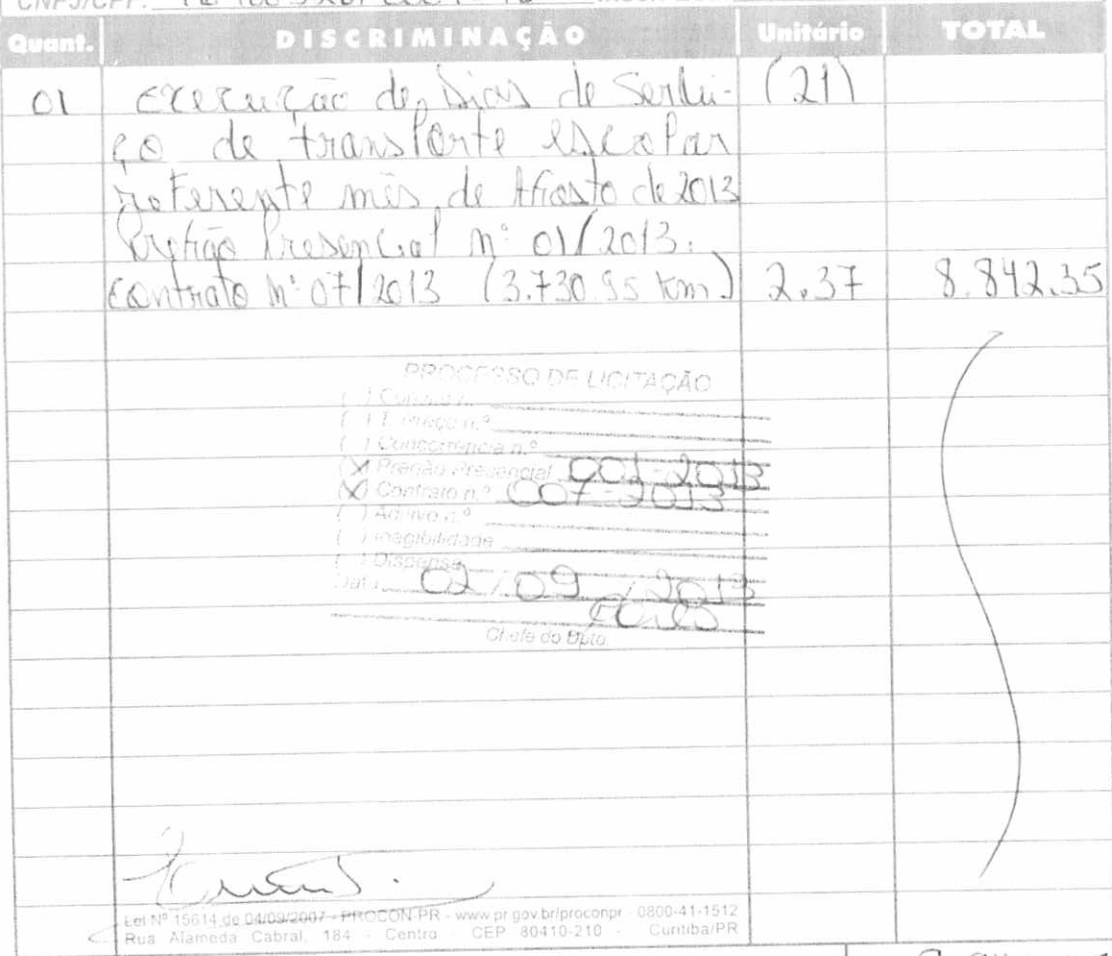 CNPJ/CPF:
Quant. DISCRIMINAÇÃO Unitário TOTAL
01 execução de Dias de Servi- (21)
ço de transporte escolar
referente mês de Agosto de 2013
Pregão Presencial nº 01/2013.
contrato nº 07/2013 (3.730.95 km) 2.37 8.842.35
PROCESSO DE LICITAÇÃO
( ) Convite n.
( ) T. Preço n.º
( ) Concorrencia n.º
(X) Pregão Presencial 001-2013
(X) Contrato n.º 007-2013
( ) Aditivo n.º
( ) Inegibilidade
( ) Dispensa
Data 02 / 09 / 2013
Chefe do Dpto.
Lei Nº 15614 de 04/09/2007 - PROCON-PR - www.pr.gov.br/proconpr - 0800-41-1512
Rua Alameda Cabral, 184 - Centro - CEP 80410-210 - Curitiba/PR